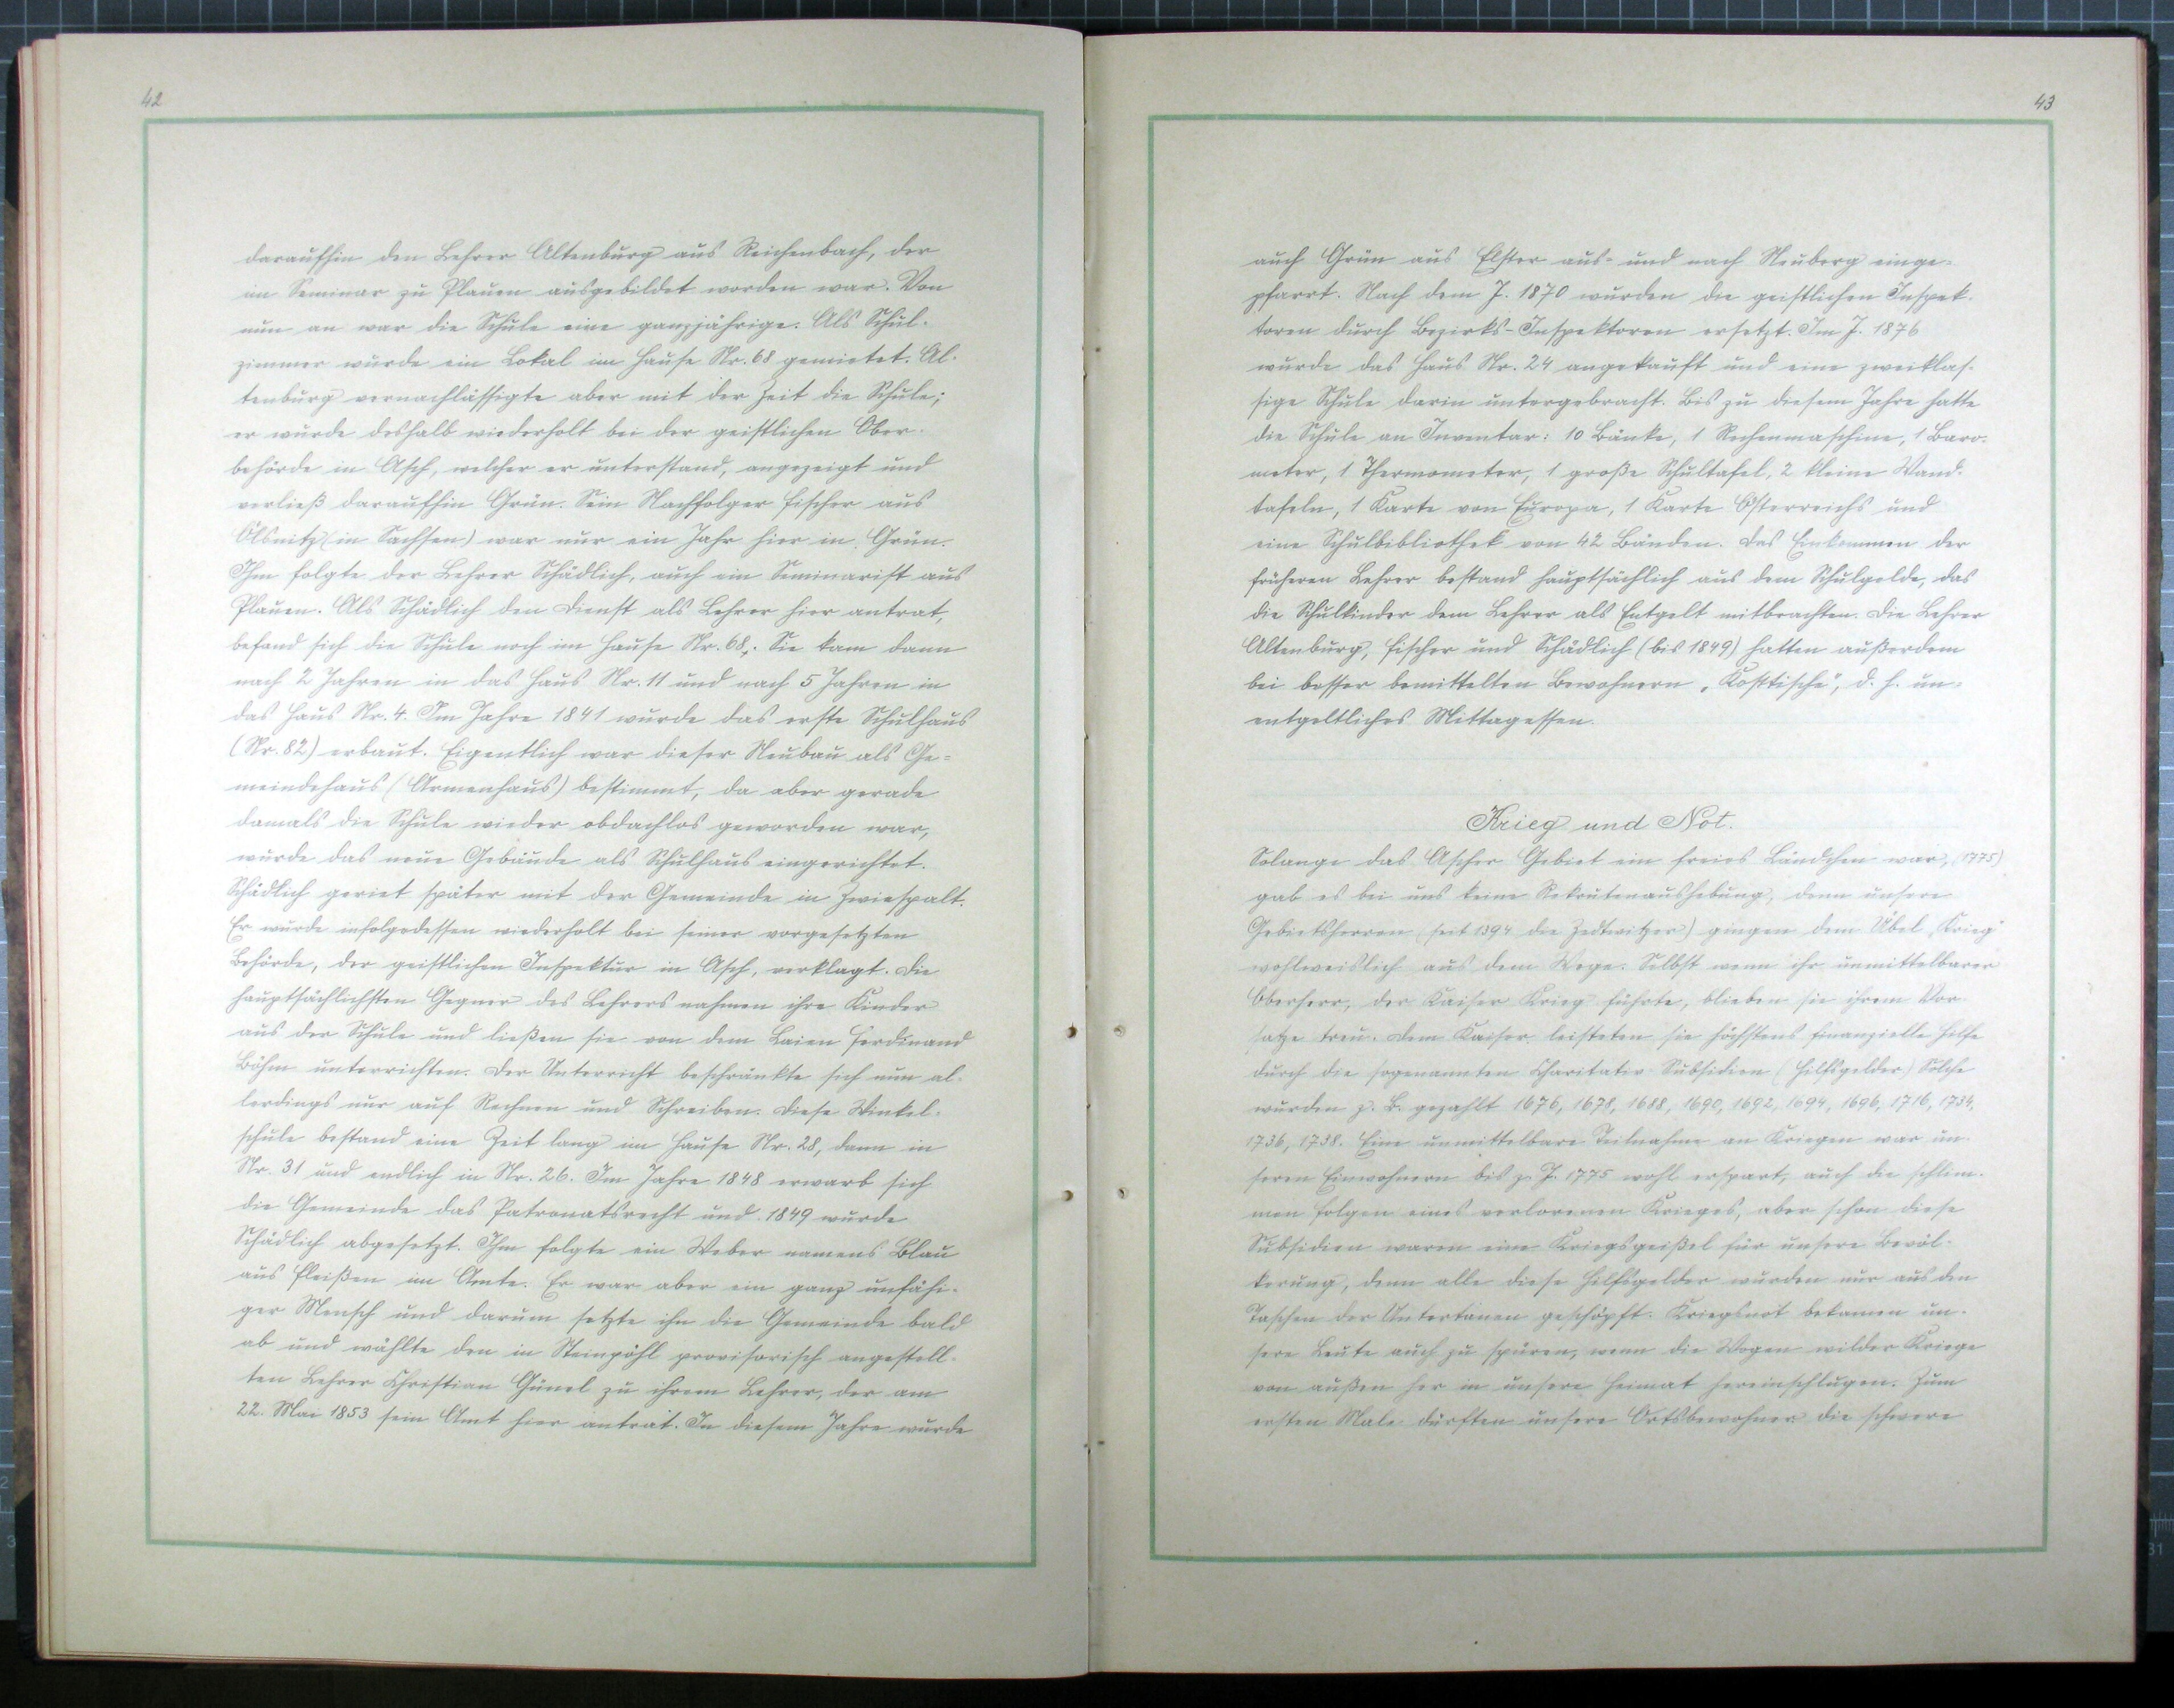 42
daraufhin den Lehrer Altenburg aus Reichenbach, der
im Seminar zu Plauen ausgebildet worden war. Von
nun an war die Schule eine ganzjährige. Als Schul-
zimmer wurde ein Lokal im Hause Nr. 68 gemietet. Al-
tenburg vernachlässigte aber mit der Zeit die Schule;
er wurde deshalb wiederholt bei der geistlichen Ober-
behörde in Asch, welcher er unterstand, angezeigt und
verließ daraufhin Grün. Sein Nachfolger Fischer aus
Ölsnitz (in Sachsen) war nur ein Jahr hier in Grün.
Ihm folgte der Lehrer Schädlich, auch ein Seminarist aus
Plauen. Als Schädlich den Dienst als Lehrer hier antrat,
befand sich die Schule noch im Hause Nr. 68. Sie kam dann
nach 2 Jahren in das Haus Nr. 11 und nach 5 Jahren in
das Haus Nr. 4. Im Jahre 1841 wurde das erste Schulhaus
(Nr. 82) erbaut. Eigentlich war dieser Neubau als Ge-
meindehaus (Armenhaus) bestimmt, da aber gerade
damals die Schule wieder obdachlos geworden war,
wurde das neue Gebäude als Schulhaus eingerichtet.
Schädlich geriet später mit der Gemeinde in Zwiespalt.
Er wurde infolgedessen wiederholt bei seiner vorgesetzten
Behörde, der geistlichen Inspektur in Asch, verklagt. Die
hauptsächlichsten Gegner des Lehrers nahmen ihre Kinder
aus der Schule und ließen sie von dem Laien Ferdinand
Böhm unterrichten. Der Unterricht beschränkte sich nun al-
lerdings nur auf Rechnen und Schreiben. Diese Winkel-
schule bestand eine Zeit lang im Hause Nr. 28, dann in
Nr. 31 und endlich in Nr. 26. Im Jahre 1848 erwarb sich
die Gemeinde das Patronatsrecht und 1849 wurde
Schädlich abgesetzt. Ihm folgte ein Weber namens Blau
aus Fleißen im Amte. Er war aber ein ganz unfähi-
ger Mensch und darum setzte ihn die Gemeinde bald
ab und wählte den in Steinpöhl provisorisch angestell-
ten Lehrer Christian Günel zu ihrem Lehrer, der am
22. Mai 1853 sein Amt hier antrat. In diesem Jahre wurde
43
auch Grün aus Elster aus- und nach Neuberg einge-
pfarrt. Nach dem J. 1870 wurden die geistlichen Inspek-
toren durch Bezirks-Inspektoren ersetzt. Im J. 1876
wurde das Haus Nr. 24 angekauft und eine zweiklas-
sige Schule darin untergebracht. Bis zu diesem Jahre hatte
die Schule an Inventar: 10 Bänke, 1 Rechenmaschine, 1 Baro-
meter, 1 Thermometer, 1 große Schultafel, 2 kleine Wand-
tafeln, 1 Karte von Europa, 1 Karte Österreichs und
eine Schulbibliothek von 42 Bänden. Das Einkommen der
früheren Lehrer bestand hauptsächlich aus dem Schulgelde, das
die Schulkinder dem Lehrer als Entgelt mitbrachten. Die Lehrer
Altenburg, Fischer und Schädlich (bis 1849) hatten außerdem
bei besser bemittelten Bewohnern „Kosttische", d. h. un-
entgeltliches Mittagessen.
Krieg und Not.
Solange das Ascher Gebiet ein freies Ländchen war, (1775)
gab es bei uns keine Rekrutenaushebung, denn unsere
Gebietsherren (seit 1394 die Zedtwitzer) gingen dem Übel „Krieg"
wohlweislich aus dem Wege. Selbst wenn ihr unmittelbarer
Oberherr, der Kaiser Krieg führte, blieben sie ihrem Vor-
satze treu. Dem Kaiser leisteten sie höchstens finanzielle Hilfe
durch die sogenannten Charitativ-Subsidien (Hilfsgelder) Solche
wurden z. B. gezahlt 1676, 1678, 1688, 1690, 1692, 1694, 1696, 1716, 1734,
1736, 1738. Eine unmittelbare Teilnahme an Kriegen war un-
seren Einwohnern bis z. J. 1775 wohl erspart, auch die schlim-
men Folgen eines verlorenen Krieges, aber schon diese
Subsidien waren eine Kriegsgeißel für unsere Bevöl-
kerung, denn alle diese Hilfsgelder wurden nur aus den
Taschen der Untertanen geschöpft. Kriegsnot bekamen un-
sere Leute auch zu spüren, wenn die Wogen wilder Kriege
von außen her in unsere Heimat hereinschlugen. Zum
ersten Male dürften unsere Ortsbewohner die schwere